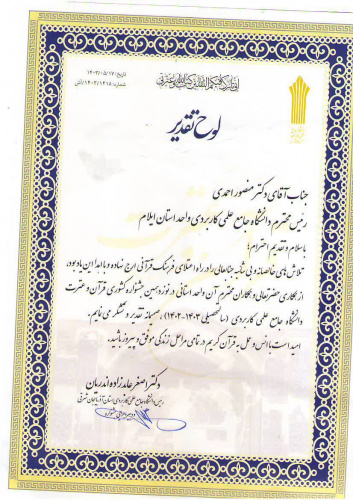 تاریخ: ۱۴۰۳/۰۵/۱۷
شماره: ۱۴۰۳/۱۴۱۵/ص
لوح تقدیر
جناب آقای دکتر منصور احمدی
رئیس محترم دانشگاه جامع علمی کاربردی واحد استان ایلام
با سلام و تقدیم احترام؛
تلاش‌های خالصانه و بی‌شائبه جنابعالی را در راه اعتلای فرهنگ قرآنی ارج نهاده و با اهدا این یادبود،
از همکاری حضرتعالی و همکاران محترم آن واحد استانی در نوزدهمین جشنواره کشوری قرآن و عترت
دانشگاه جامع علمی کاربردی (سالتحصیلی ۱۴۰۳-۱۴۰۲)، صمیمانه تقدیر و تشکر می نمایم.
امید است با انس و عمل به قرآن کریم در تمامی مراحل زندگی موفق و پیروز باشید.
دکتر اصغر عابدزاده اندریان
رئیس دانشگاه جامع علمی کاربردی استان آذربایجان شرقی
و دبیر اجرایی جشنواره